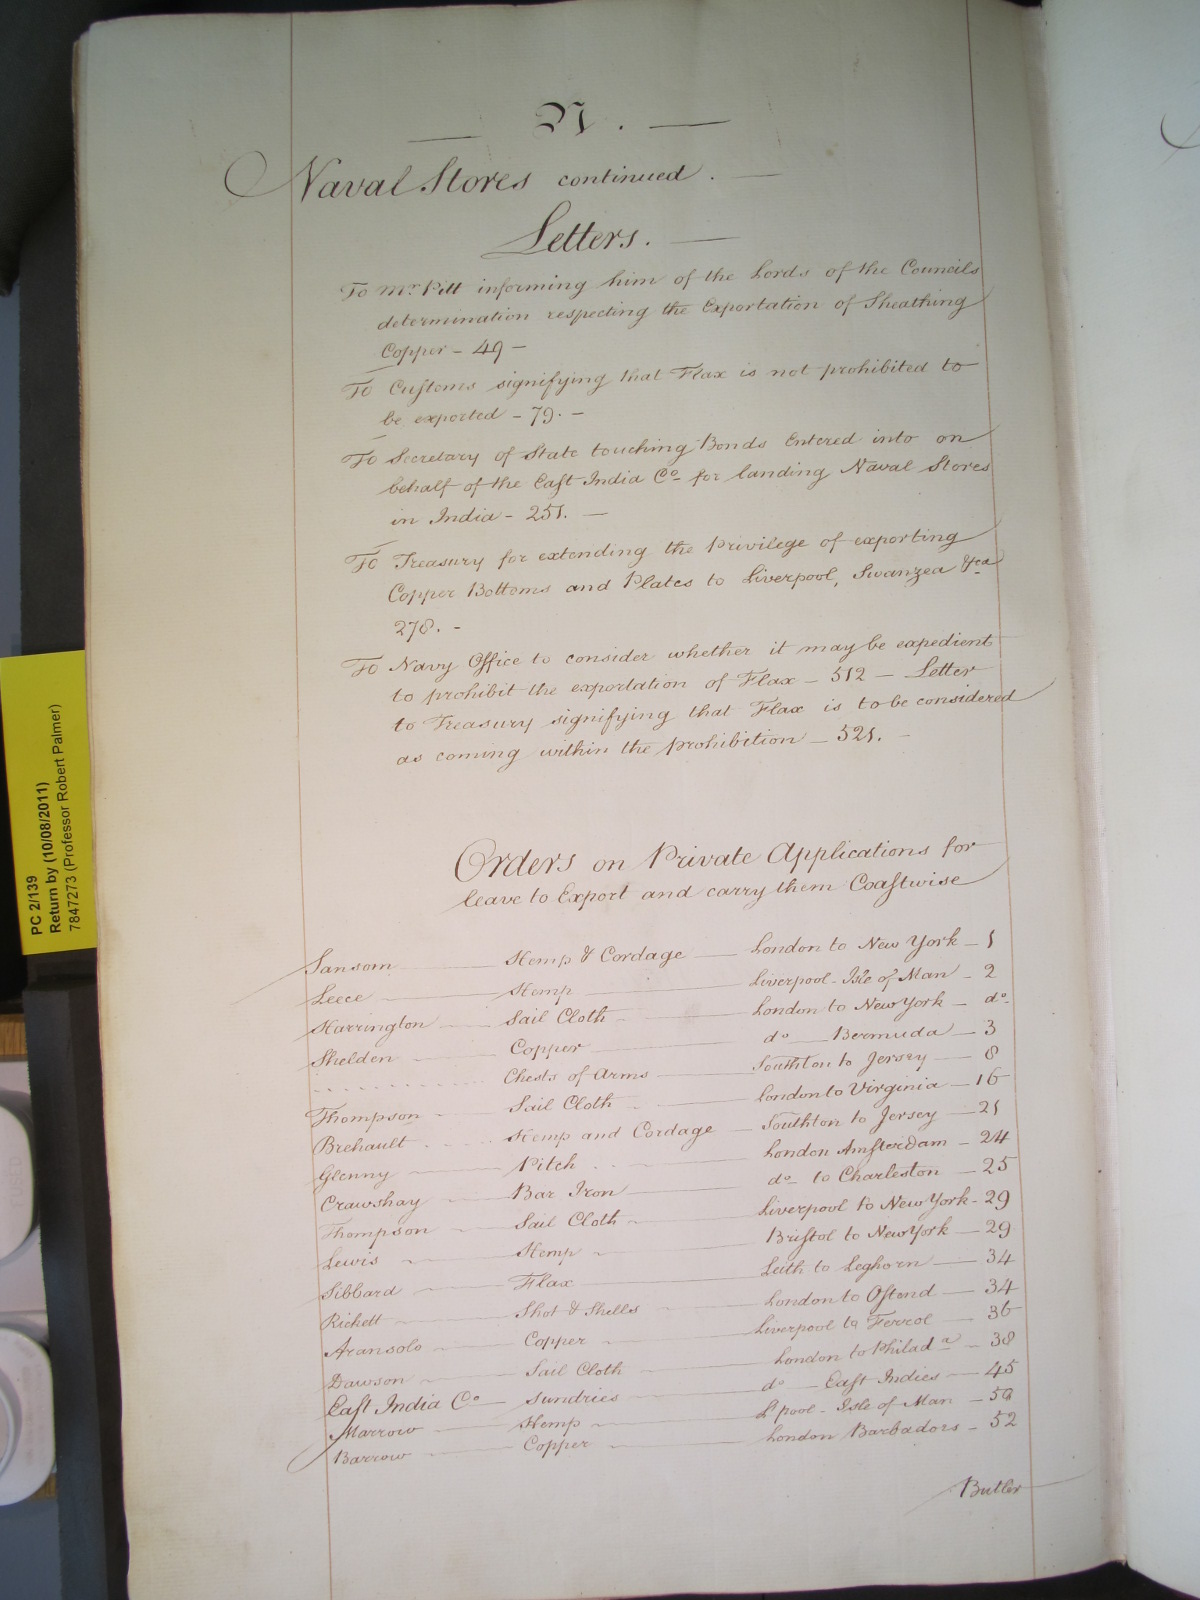 N.
Naval Stores continued.
Letters.
To Mr. Pitt informing him of the Lords of the Councils
determination respecting the Exportation of Sheathing
Copper - 49 -
To Customs signifying that Flax is not prohibited to
be exported - 79. -
To Secretary of State touching Bonds Entered into on
behalf of the East India Co. for landing Naval Stores
in India - 251. -
To Treasury for extending the Privilege of exporting
Copper Bottoms and Plates to Liverpool, Swanzea &ca
278. -
To Navy Office to consider whether it may be expedient
to prohibit the exportation of Flax - 512 - Letter
to Treasury signifying that Flax is to be considered
as coming within the prohibition - 521. -
Orders on Private Applications for
leave to Export and carry them Coastwise
Sansom - Hemp & Cordage - London to New York - 1
Leece - Hemp - Liverpool - Isle of Man - 2
Harrington - Sail Cloth - London to New York - do.
Shelden - Copper - do - Bermuda - 3
Chests of Arms - Southton to Jersey - 8
Thompson - Sail Cloth - London to Virginia - 16
Brehault - Hemp and Cordage - Southton to Jersey - 21
Glenny - Pitch - London Amsterdam - 24
Crawshay - Bar Iron - do to Charleston - 25
Thompson - Sail Cloth - Liverpool to New York - 29
Lewis - Hemp - Bristol to New York - 29
Sibbard - Flax - Leith to Leghorn - 34
Rickett - Shot & Shells - London to Ostend - 34
Aransolo - Copper - Liverpool to Ferrol - 36
Dawson - Sail Cloth - London to Philada - 38
East India Co - Sundries - do - East Indies - 45
Marrow - Hemp - Lpool - Isle of Man - 50
Barrow - Copper - London Barbadors - 52
Butler
PC 2/139
Return by (10/08/2011)
7847273 (Professor Robert Palmer)